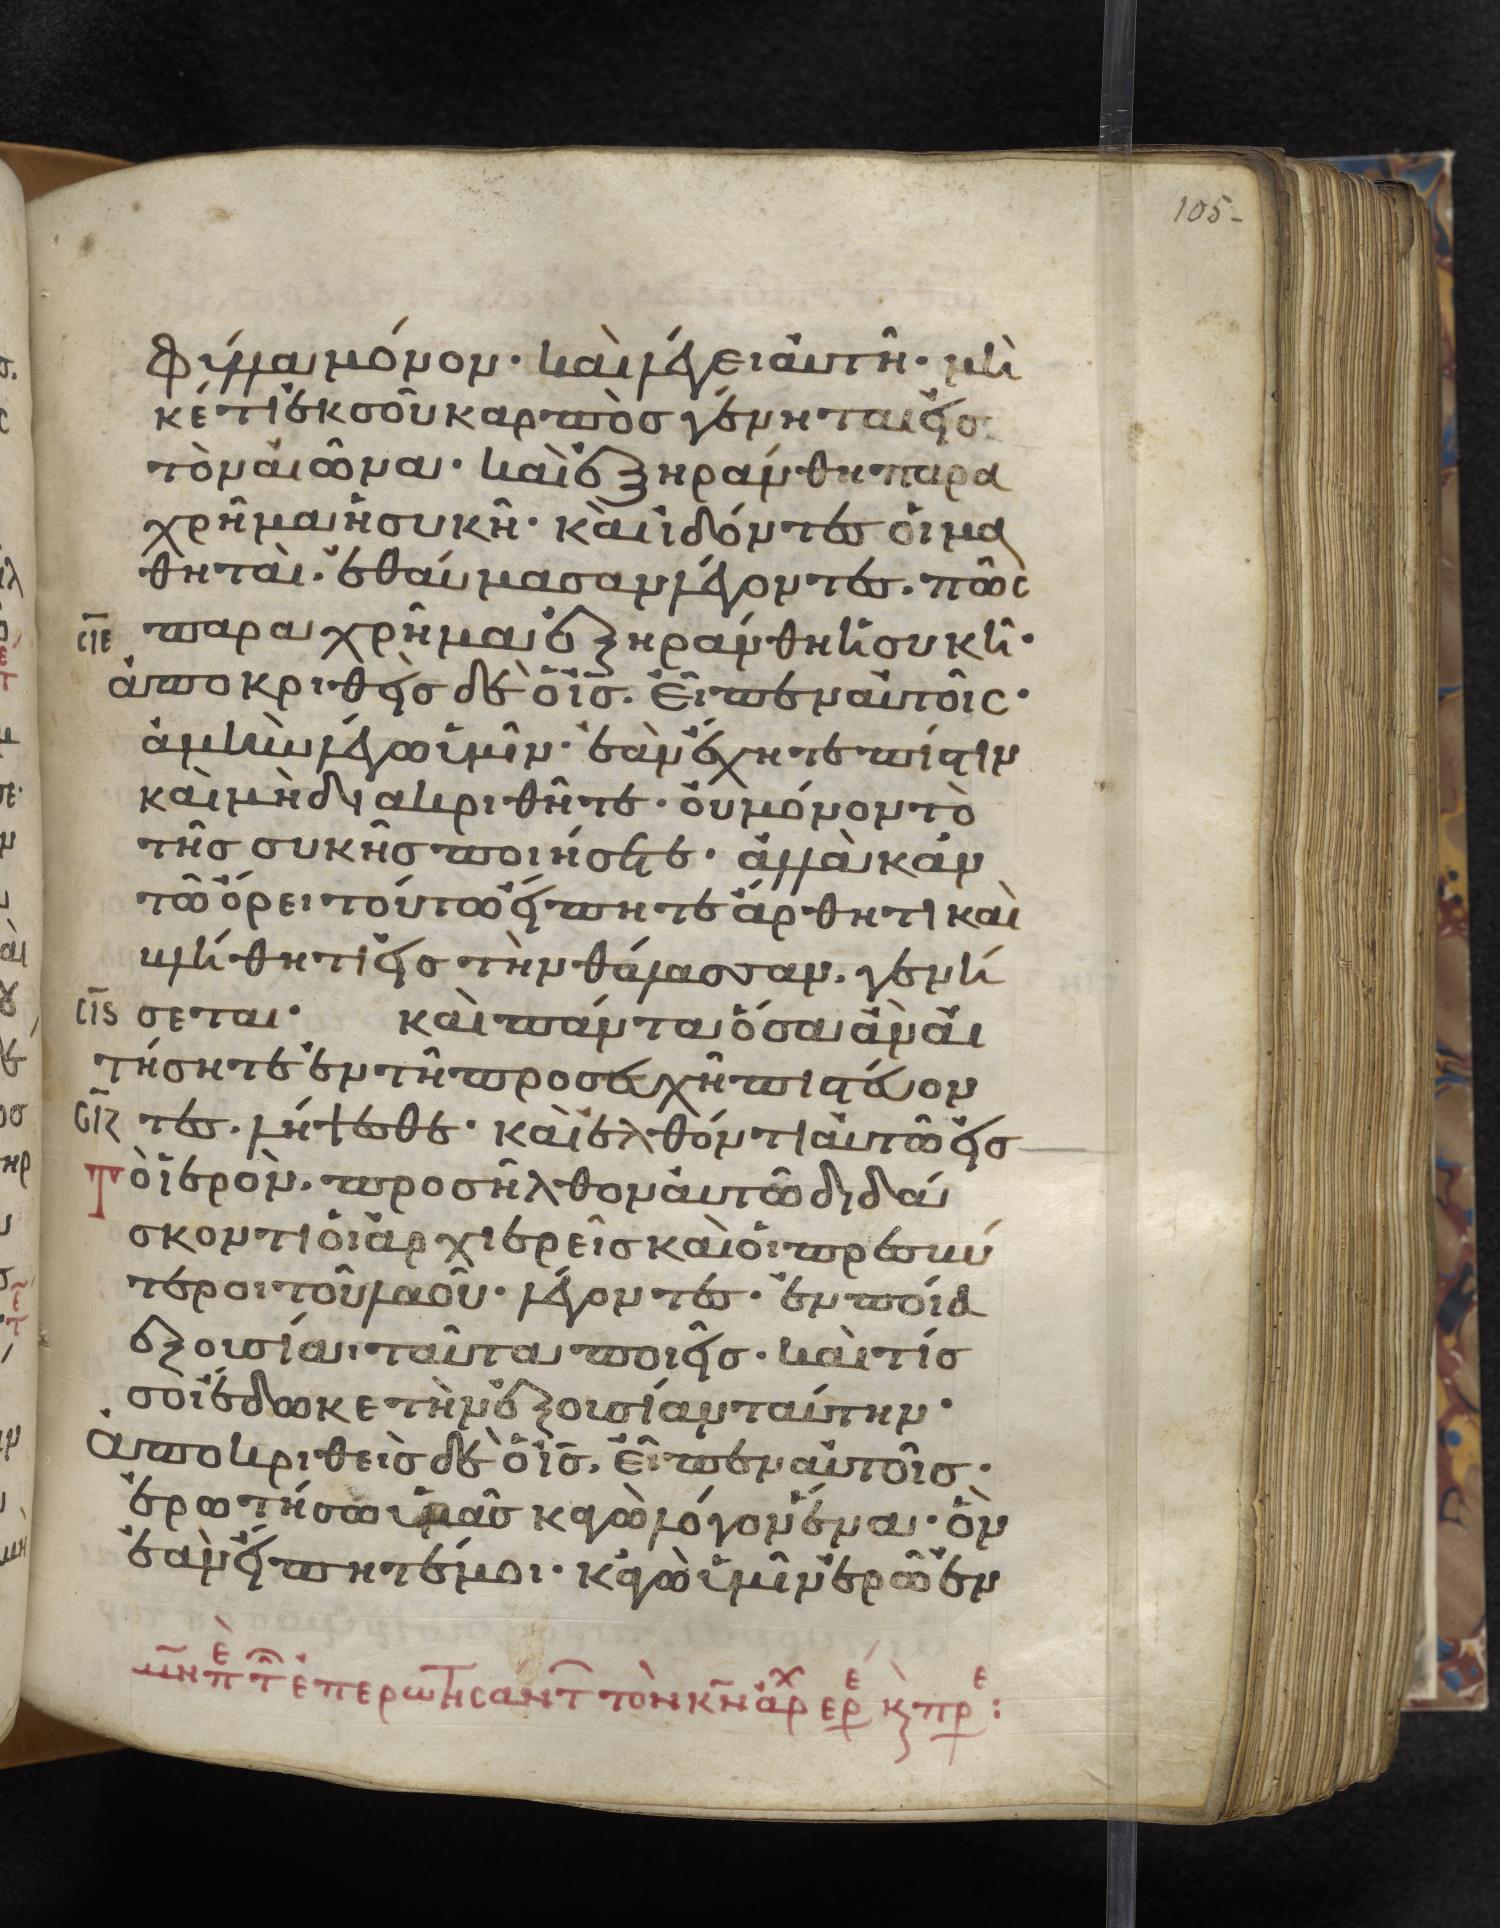 105-
φύλλα μόνον· καὶ λέγει αὐτῆ· μὴ
κέτι ἐκ σοῦ καρπὸσ γένηται εἰσ
τὸν αἰῶνα· καὶ ἐξηράνθη παρα
χρῆμα ἡ συκῆ· καὶ ἰδόντεσ οἱ μα
θηταὶ. ἐθαύμασαν λέγοντεσ. πῶς
σιε παραχρῆμα ἐξηράνθη ἡ συκῆ·
ἀποκριθεὶσ δὲ ὁ ισ. εἶπεν αὐτοῖς·
ἀμὴν λέγω ὑμῖν· ἐὰν ἔχητε πίστιν
καὶ μὴ διακριθῆτε· οὐ μόνον τὸ
τῆσ συκῆσ ποιήσητε· ἀλλὰ κἀν
τῶ ὄρει τούτω εἴπητε ἄρθητι καὶ
βλήθητι εἰσ τὴν θάλασσαν. γενή
σις σεται· καὶ πάντα ὅσα ἂν αἰ
τήσητε ἐν τῆ προσευχῆ πιστεύον
σιζ τεσ. λήψεσθε· καὶ ἐλθόντι αὐτῶ εἰσ
Τὸ ἱερὸν. προσῆλθον αὐτῶ διδά
σκοντι οἱ ἀρχιερεῖσ καὶ οἱ πρεσβύ
τεροι τοῦ λαοῦ· λέγοντεσ· ἐν ποία
ἐξουσία ταῦτα ποιεῖσ· καὶ τίσ
σοὶ ἔδωκε τὴν ἐξουσίαν ταύτην·
ἀποκριθεὶσ δὲ ὁ ισ. εἶπεν αὐτοῖσ·
ἐρωτήσω ὑμᾶσ κἀγὼ λόγον ἕνα· ὃν
ἐὰν εἴπητέ μοι· κἀγὼ ὑμῖν ἐρῶ ἐν